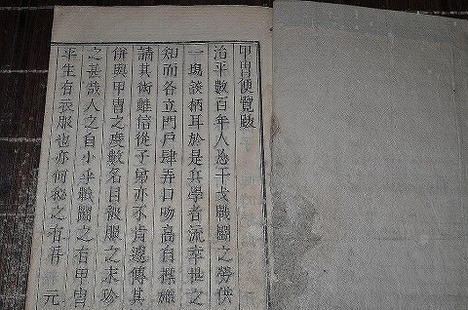 甲冑便覽跋
治平數百年人忘干戈戰鬭之勞供
一塲談柄耳於是兵學者流幸世之
知而各立門戶肆弄口吻高自標
請其術雖信從子弟亦不肯遽傳其
併與甲冑之度數名目被服之末珍
之甚哉人之自小乎戰鬭之有甲冑
平生有衣服也亦何秘之有昔 元